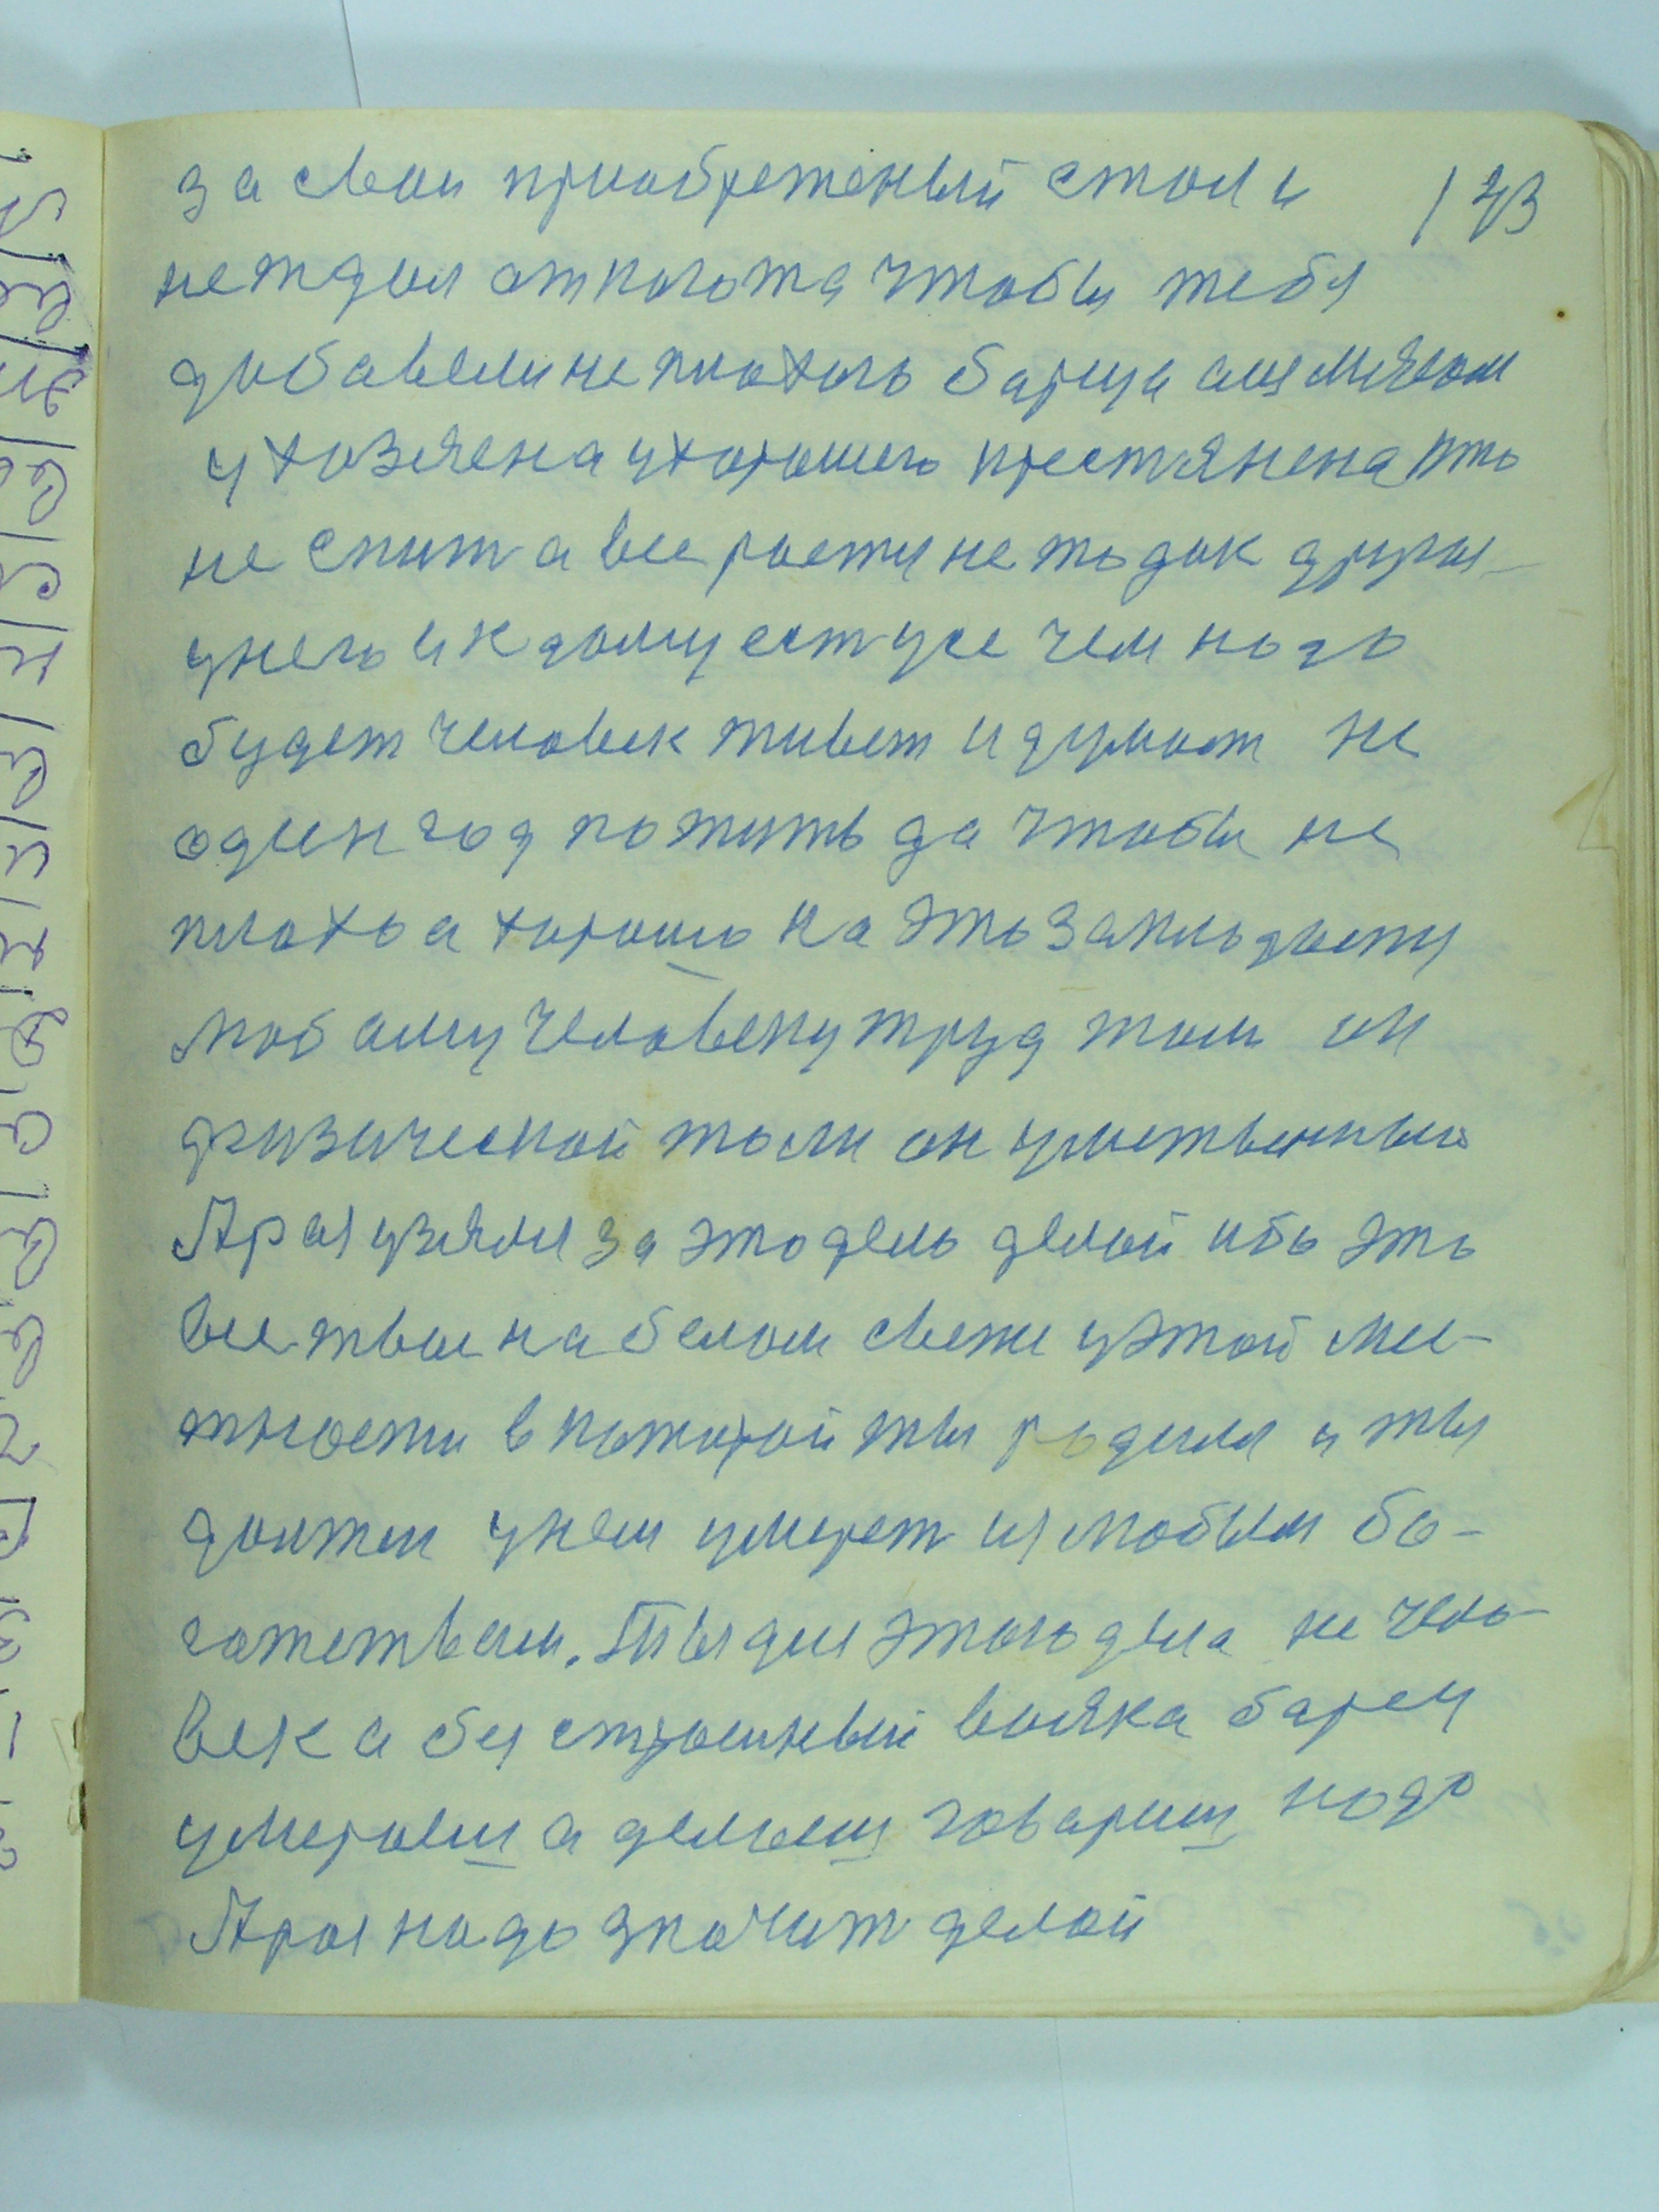 за свои приобретеный стол и 173
не ждал от когота чтобы тебя
добавели не плохого борща али мясом
у хозяена у хорошего крестянена кто
не спит а все растиу не то дак други-
у него и к дому ест усе чем надо
будет человек живет и думает не
один год пожить да чтобы не
плохо а хорошо на это закладасту
любому человеку труд толи он
физической толи он умственный
Ярая узялся за это дело делай ибо это
все твое на белом свете у этой мес-
тности в которой ты родился и ты
должен у нем умерет из любым бо-
гатством. Ты для этого дела не чело-
век а быстроенный вояка борец
умераеш а делаеш говариш надо
Ярая надо значит делай